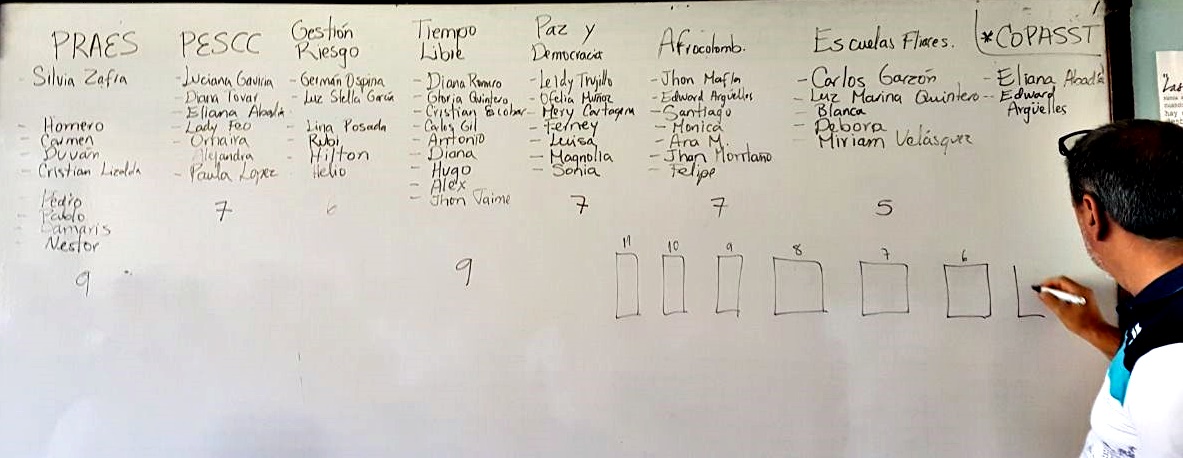 PRAES
Silvia Zafra
- Homero
- Carmen
- Duván
- Cristian Lizalda
- Pedro
- Pablo
- Damaris
- Nestor
9
PESCC
- Luciana Gaviria
- Diana Tovar
- Eliana Abadía
- Lady Feo
- Omaira
- Alejandra
- Paula Lopez
7
Gestión
Riesgo
- Germán Ospina
- Luz Stella García
- Lina Posada
- Rubi
- Hilton
- Helio
6
Tiempo
Libre
- Diana Romero
- Gloria Quintero
- Cristian Escobar
- Carlos Gil
- Antonio
- Diana
- Hugo
- Alex
- Jhon Jaime
9
Paz y
Democracia
- Leidy Trujillo
- Ofelia Muñoz
- Mery Cartagena
- Ferney
- Luisa
- Magnolia
- Sonia
7
Afrocolomb.
- Jhon Mafla
- Edward Argüelles
- Santiago
- Monica
- Ana M.
- Jhan Montaño
- Felipe
7
Escuelas Fliares.
- Carlos Garzón
- Luz Marina Quintero
- Blanca
- Debora
- Miriam Velásquez
5
*COPASST
- Eliana Abadía
- Edward
Argüelles
11 10 9 8 7 6
"Las